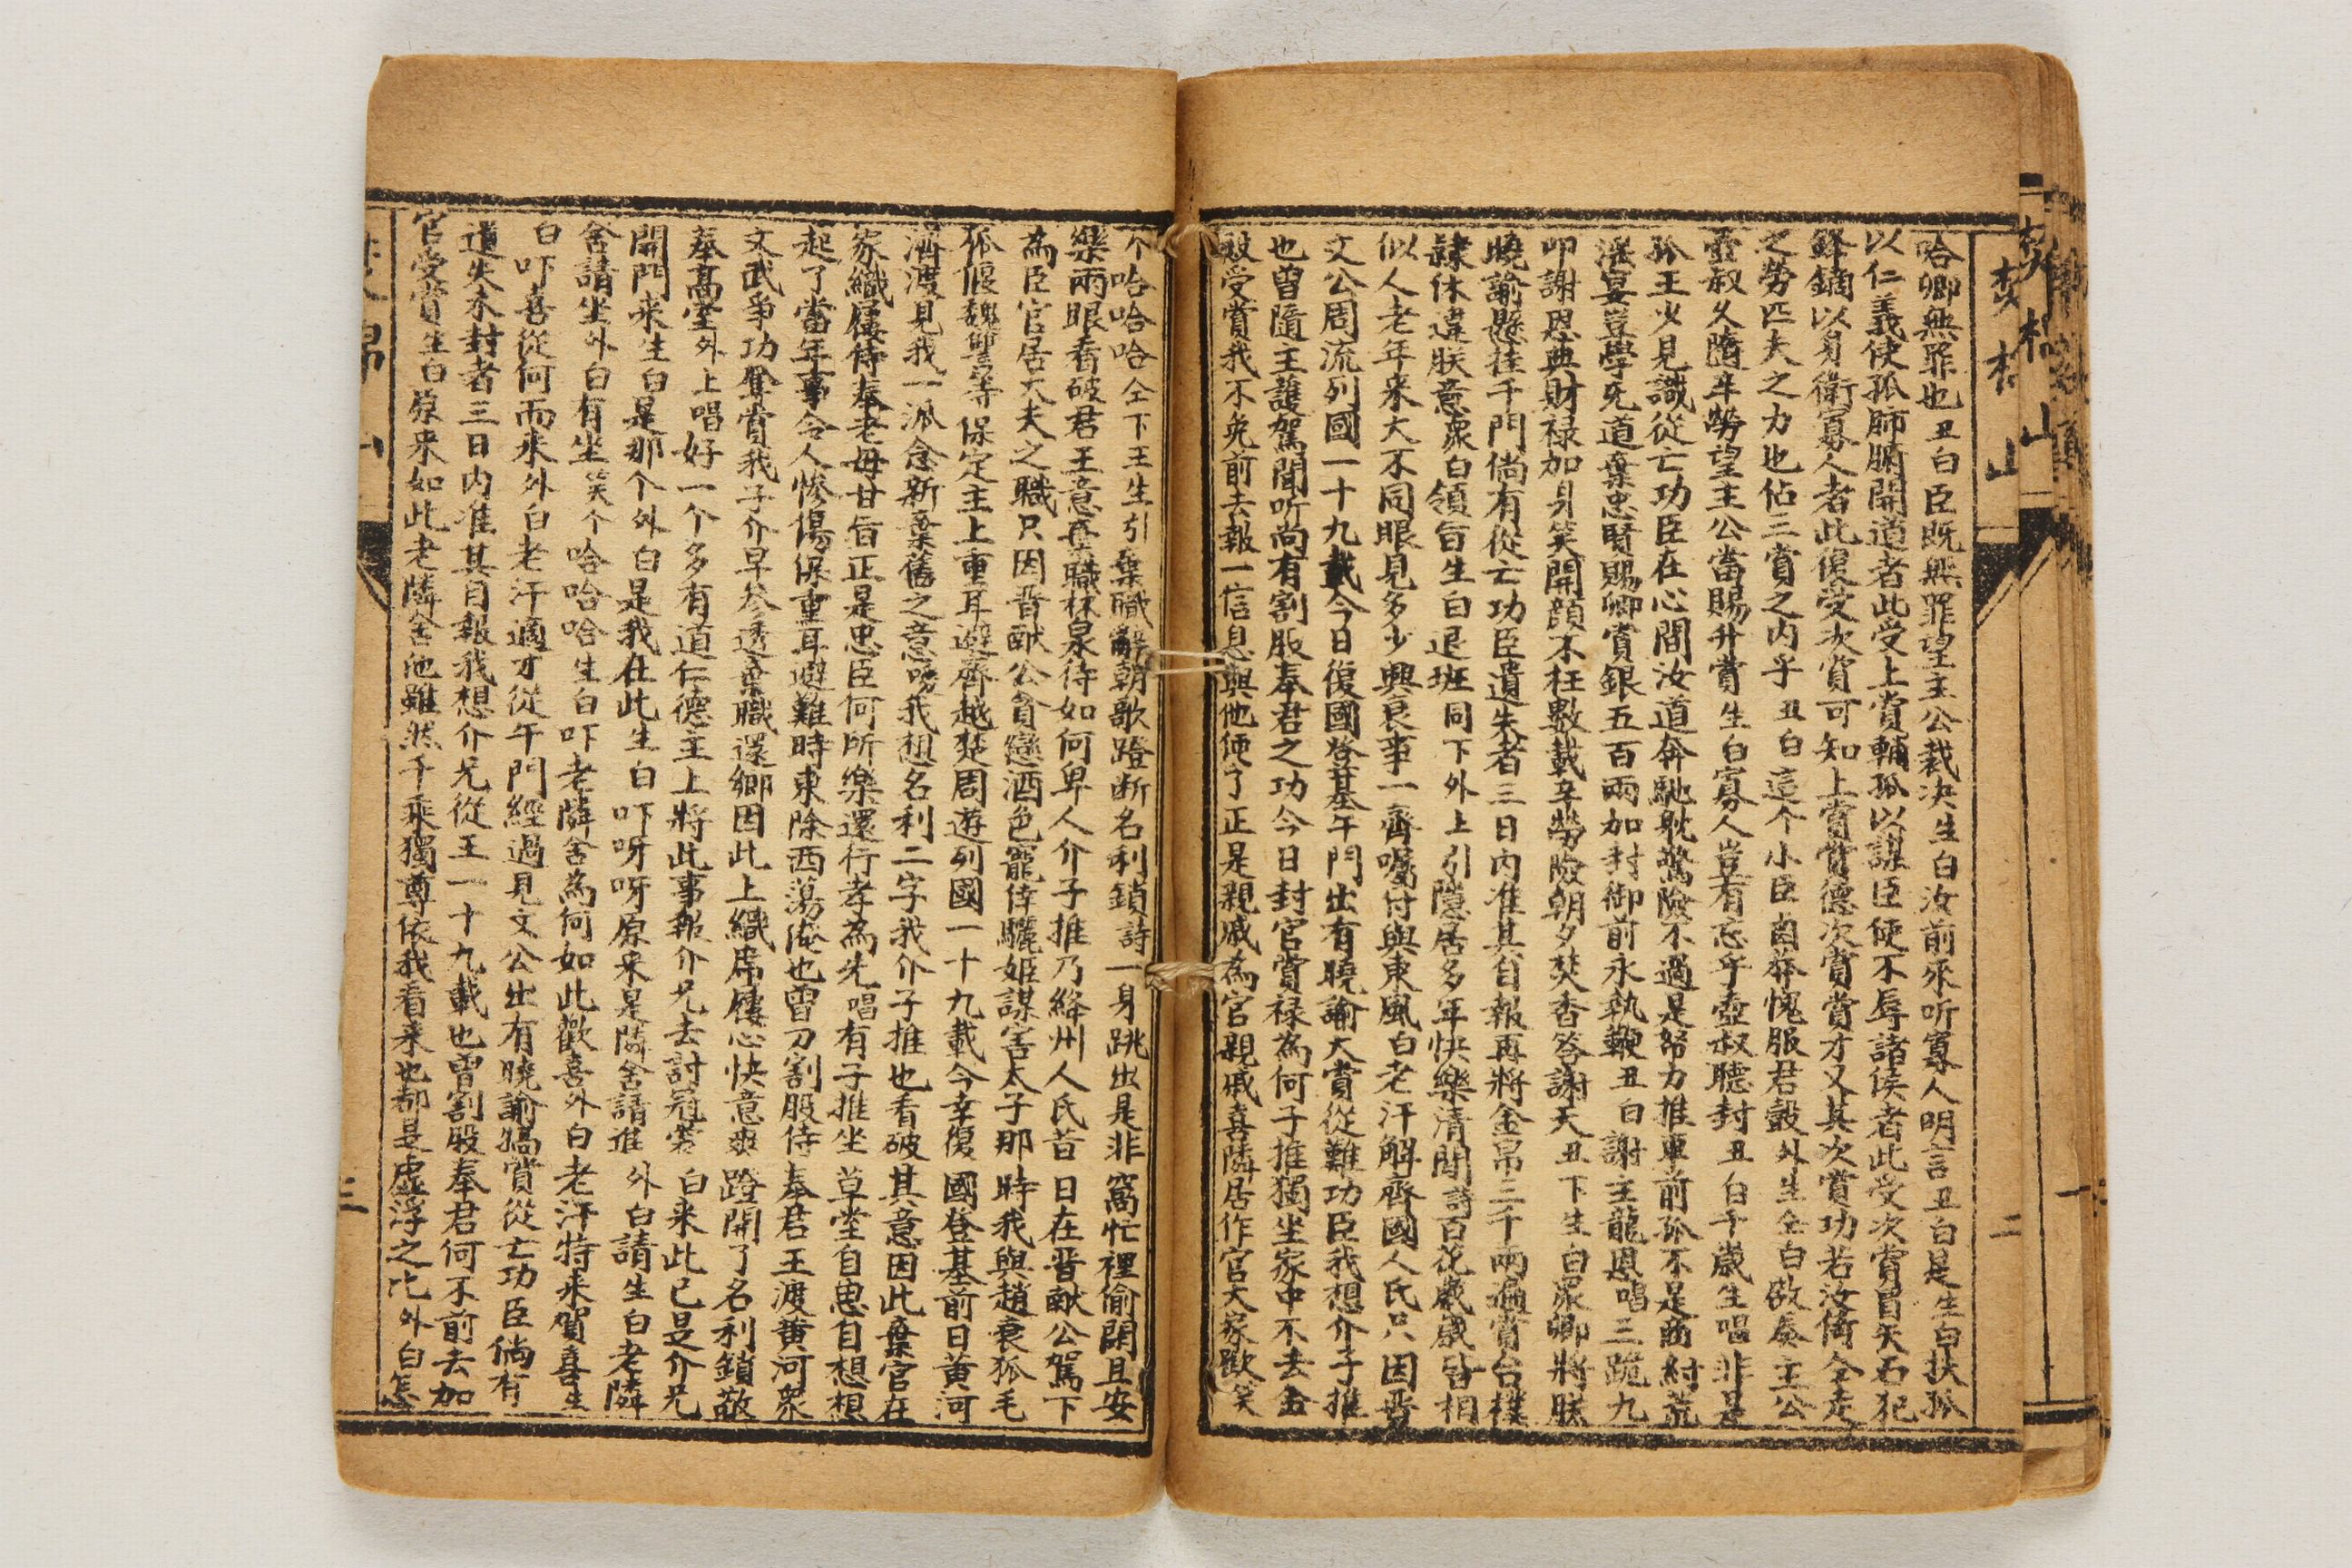 哈卿無罪也丑白臣既無罪望主公裁决生白汝前來听寡人明言丑白是生白扶孤
以仁義使孤肺腑開道者此受上賞輔孤以謀臣使不辱諸侯者此受次賞冒矢石犯
鋒鏑以身衛寡人者此復受次賞可知上賞賞德次賞賞才又其次賞功若汝倚仝走
之勞匹夫之力也佔三賞之内乎丑白這个小臣鹵莽愧服君㲄外生仝白啟奏主公
壺叔久隨辛勞望主公當賜升賞生白寡人豈有忘乎壺叔聽封丑白千歲生唱非是
孤王少見識從亡功臣在心間汝道奔馳耽驚險不過是努力推車前孤不是商紂荒
淫宴豈學死道棄忠賢賜卿賞銀五百兩加封御前永執鞭丑白謝主龍恩唱三跪九
叩謝恩典財祿加身笑開顔不枉數載辛勞險朝夕焚香答謝天丑下生白眾卿將朕
曉諭懸挂千門倘有從亡功臣遺失者三日内准其自報再將金帛三千兩過賞台樸
隸休違朕意衆白領旨生白退班同下外上引隱居多年快樂清閒詩百花歲歲皆相
似人老年来大不同眼見多少興衰事一齊嘱付與東風白老汗解齊國人氏只因晋
文公周流列國一十九載今日復國登基午門出有曉諭大賞從難功臣我想介子推
也曾隨主護駕聞听尚有割股奉君之功今日封官賞禄為何子推獨坐家中不去金
殿受賞我不免前去報一信息與他便了正是親戚為官親戚喜隣居作官大家歡笑
焚棉山
二
个哈哈哈仝下王生引棄職辭朝歌蹬断名利鎖詩一身跳出是非窩忙裡偷閑且安
樂兩眼看破君王意弃職林泉待如何卑人介子推乃絳州人氏昔日在晋献公駕下
為臣官居大夫之職只因晋献公貪戀酒色寵倖驪姬謀害太子那時我與趙衰狐毛
狐偃魏犨等保定主上重耳避齊越楚周遊列國一十九載今幸復國登基前日黄河
濟渡見我一派念新棄舊之意嗳我想名利二字我介子推也看破其意因此棄官在
家織屨侍奉老母甘旨正是忠臣何所樂還行孝為先唱有子推坐草堂自思自想想
起了當年事令人慘傷保重耳避難時東除西蕩俺也曾刀割股侍奉君王渡黄河衆
文武爭功受賞我子介早參透棄職還鄉因此上織席屨心快意爽蹬開了名利鎖敬
奉高堂外上唱好一个多有道仁德主上將此事報介兄去討冠裳白来此已是介兄
開門来生白是那个外白是我在此生白吓呀呀原来是隣舍請進外白請生白老隣
舍請坐外白有坐笑个哈哈哈生白吓老隣舍為何如此歡喜外白老汗特来賀喜生
白吓喜從何而来外白老汗適才從午門經過見文公出有曉諭犒賞從亡功臣倘有
遺失未封者三日内准其自報我想介兄從王一十九載也曾割股奉君何不前去加
官受賞生白原来如此老隣舍他雖然千乘獨尊依我看来也都是虛浮之比外白怎
三